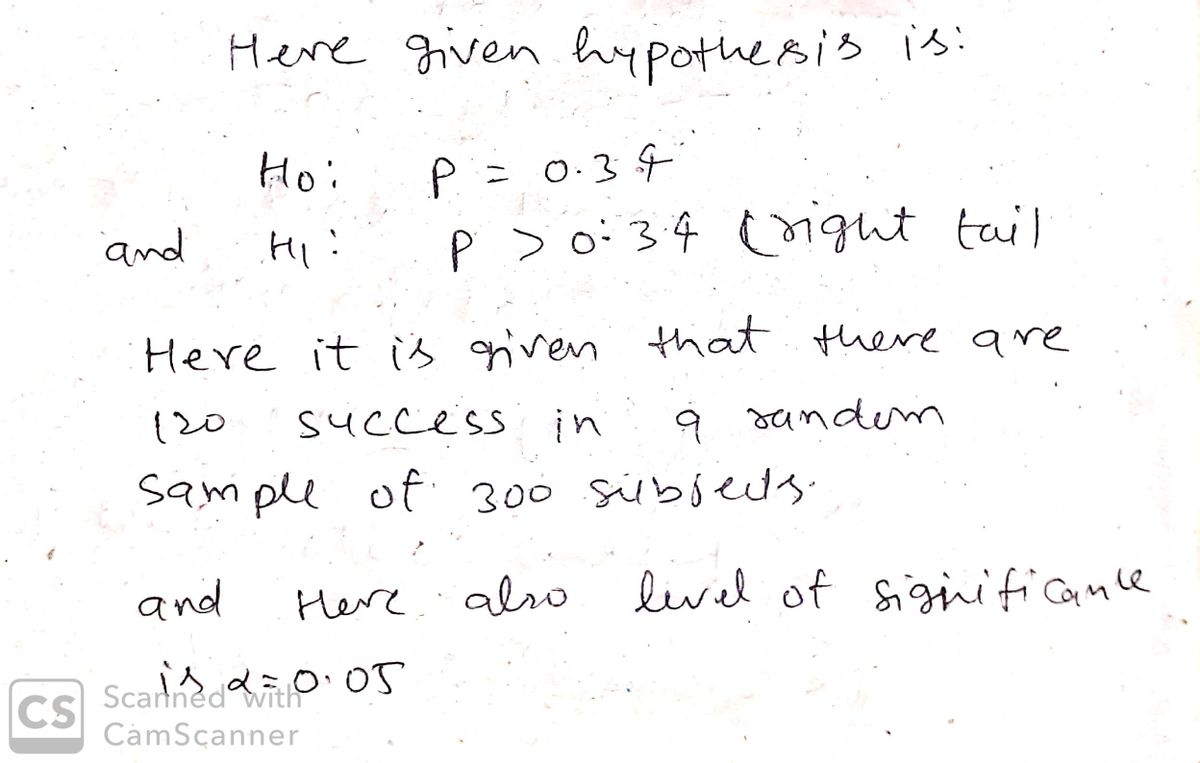 Here given hypothesis is:
Ho: p = 0.34
and H1: p > 0.34 (right tail
Here it is given that there are
120 success in a random
sample of 300 subjects.
and Here also level of significance
is α=0.05
CS Scanned with
CamScanner